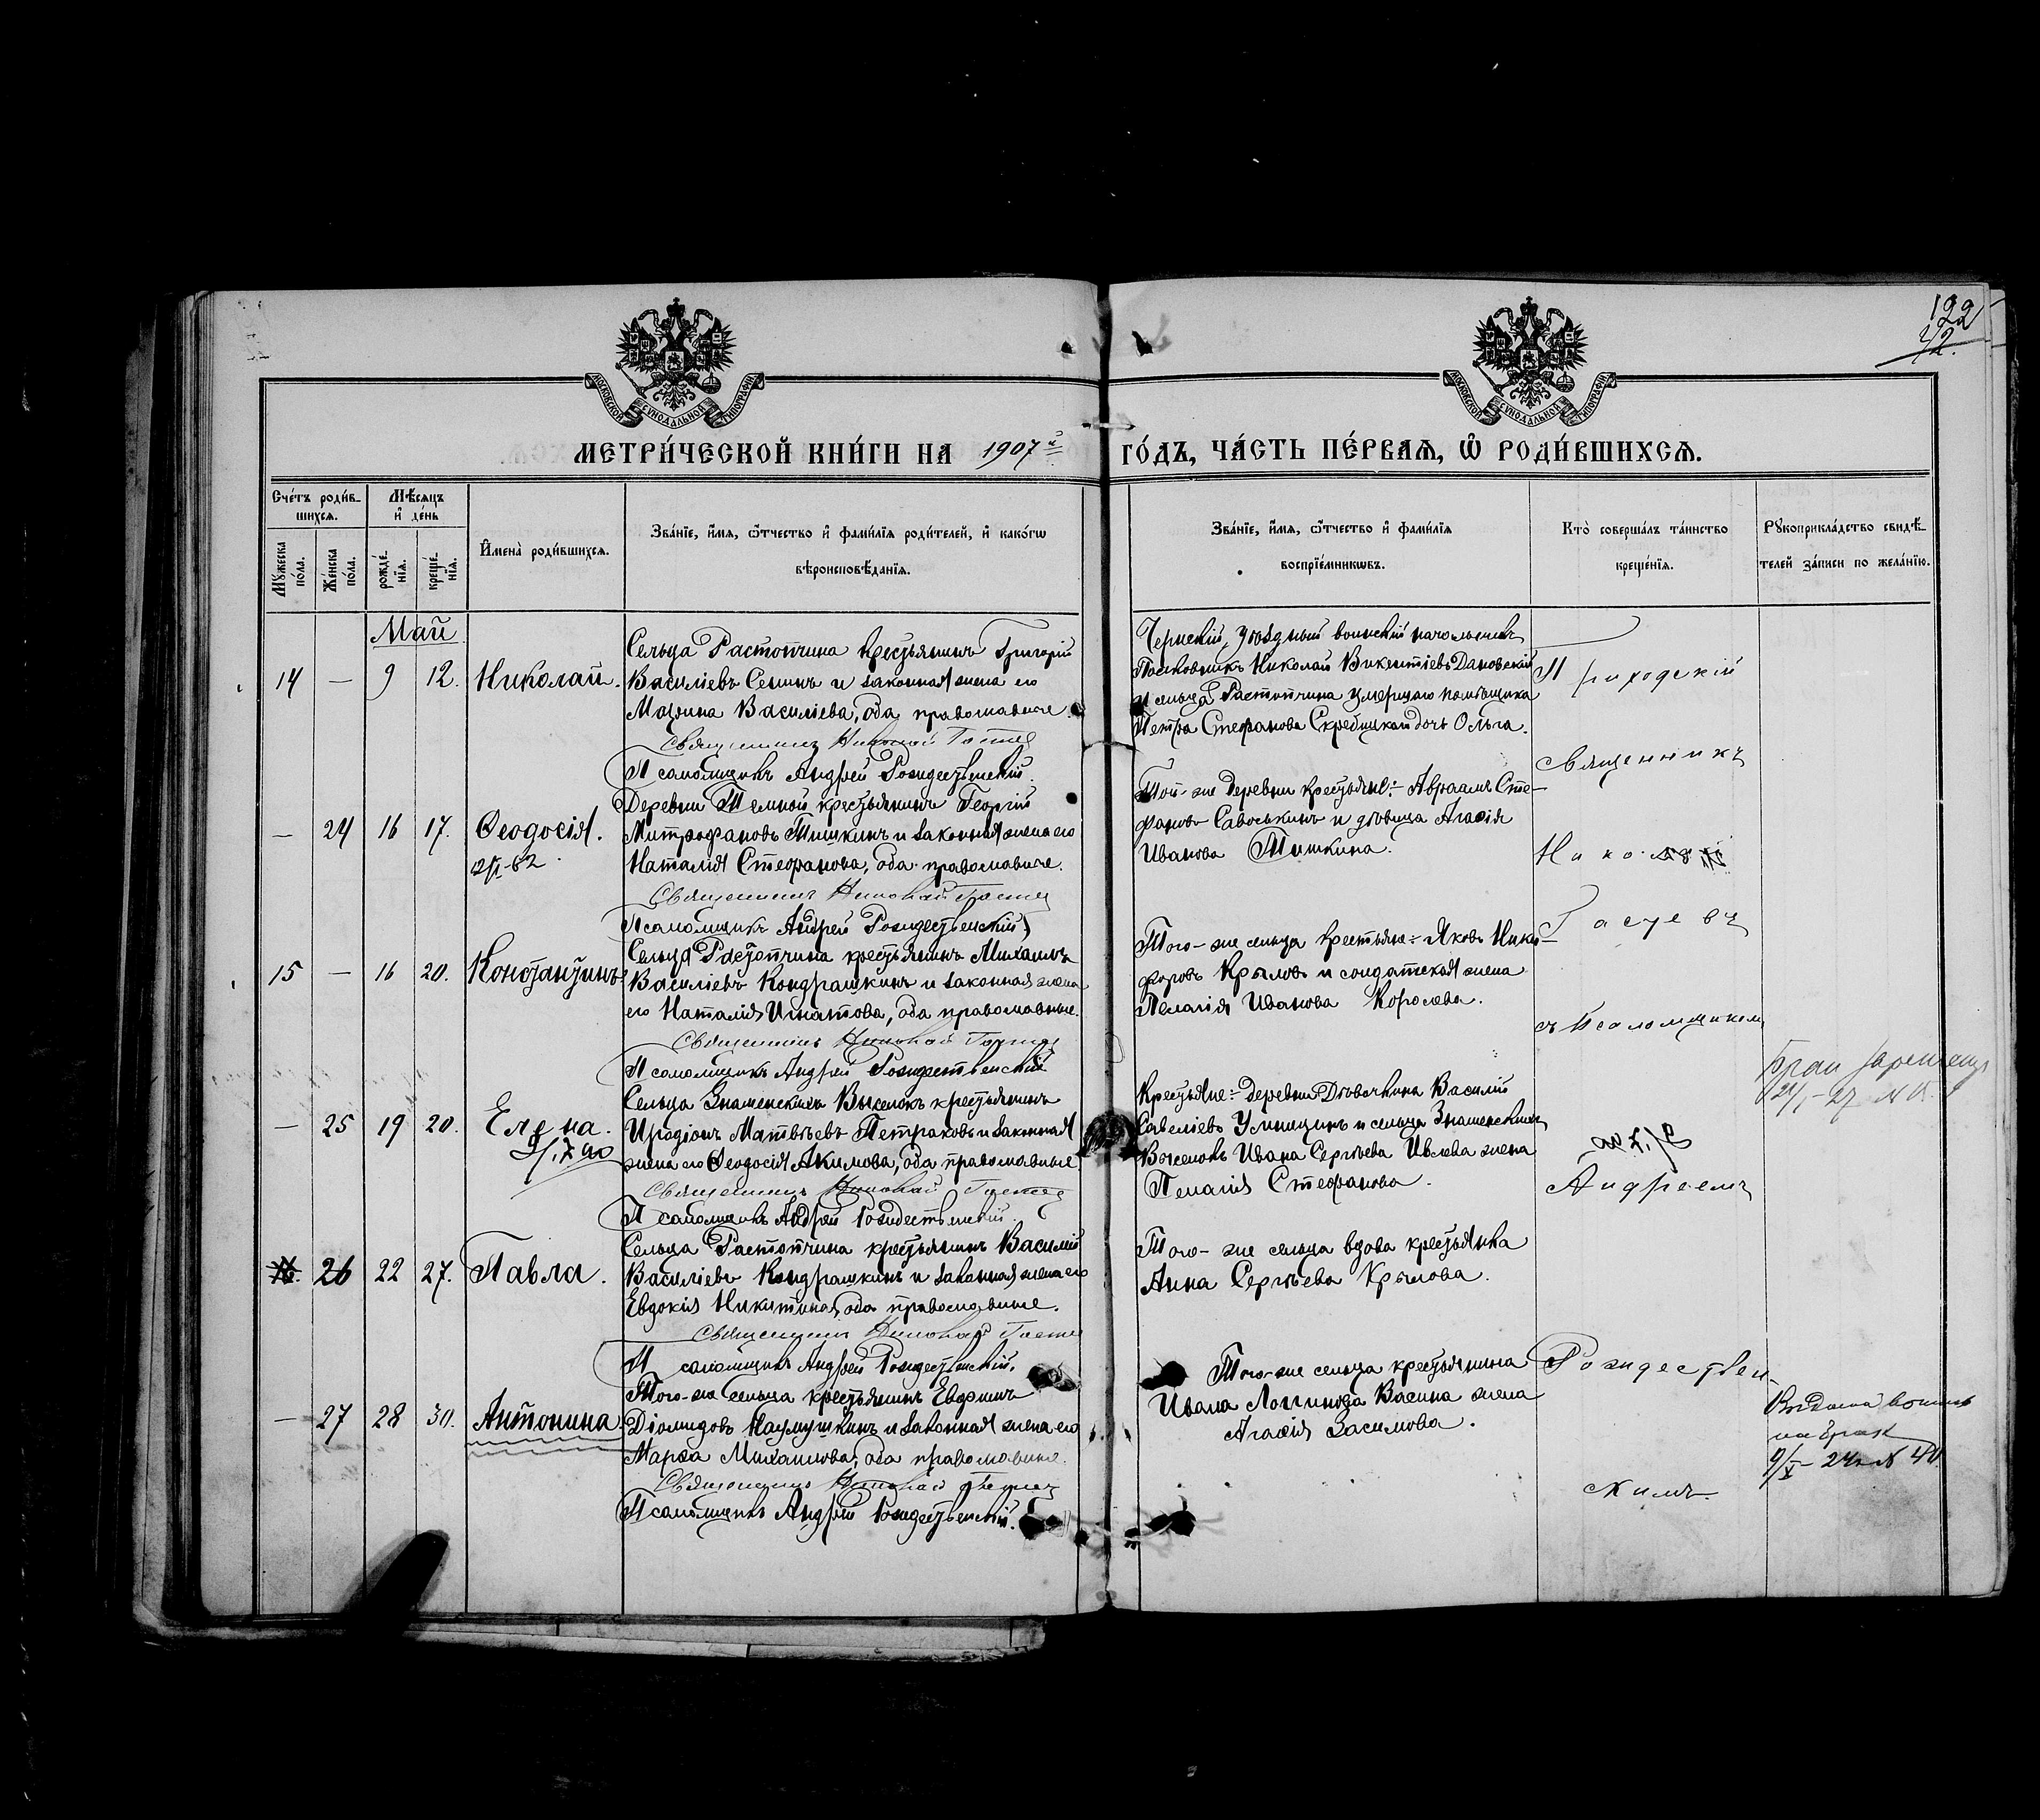 122
МОСКОВСКОЙ СѴНОДАЛЬНОЙ ТИПОГРАФІИ
МОСКОВСКОЙ СѴНОДАЛЬНОЙ ТИПОГРАФІИ
МЕТРИ́ЧЕСКОЙ КНИ́ГИ НА 1907й ГО́ДЪ, ЧА́СТЬ ПЕ́РВАѦ, Ѡ҆ РОДИ́ВШИХСѦ.
Сче́тъ роди́в-
шихсѧ.
Мѣ́сѧцъ
и҆ де́нь
Мꙋ́жеска по́ла.
Же́нска по́ла.
рожде́-нїѧ.
креще́-нїѧ.
И҆мена̀ роди́вшихсѧ.
Зва́нїе, и҆́мѧ, ѻ҆́тчество и҆ фами́лїѧ роди́телей, и҆ како́гѡ
вѣроисповѣ́данїѧ.
Зва́нїе, и҆́мѧ, ѻ҆́тчество и҆ фами́лїѧ
воспрїе́мникѡвъ.
Кто̀ соверша́лъ та́инство
креще́нїѧ.
Рꙋкоприкла́дство свидѣ́-
телей за́писи по жела́нїю.
Май
14 — 9 12. Николай.
Сельца Растопчина крестьянинъ Григорій
Василіевъ Сенинъ и законная жена его
Марина Василіева, оба православные.
Священникъ Николай Гастев
Псаломщикъ Андрей Рождественскій.
Чернскій уѣздный воинскій начальникъ
Полковникъ Николай Викентіевъ Дановскій
и сельца Растопчина умершаго помѣщика
Петра Стефанова Скребицкаго дочь Ольга.
— 24 16 17. Ѳеодосія.
Деревни Темной крестьянинъ Георгій
Митрофановъ Тишкинъ и законная жена его
Наталія Стефанова, оба православные.
Священникъ Николай Гастев
Псаломщикъ Андрей Рождественскій
Той-же деревни крестьяне:- Авраамъ Сте-
фановъ Савоськинъ и дѣвица Агаѳія
Иванова Тишкина.
15 — 16 20. Константинъ
Сельца Растопчина крестьянинъ Михаилъ
Василіевъ Кондрашкинъ и законная жена
его Наталія Игнатова, оба православные.
Священникъ Николай Гастев
Псаломщикъ Андрей Рождественскій
Того-же сельца крестьяне:- Яковъ Ники-
форовъ Крыловъ и солдатская жена
Пелагія Иванова Королева.
— 25 19 20. Елена.
Сельца Знаменскихъ Выселокъ крестьянинъ
Иродіонъ Матвѣевъ Петраковъ и законная
жена его Ѳеодосія Акимова, оба православные
Священникъ Николай Гастев
Псаломщикъ Андрей Рождественскій.
Крестьяне:- деревни Дѣвочкина Василій
Савеліевъ Умницинъ и сельца Знаменскихъ
Выселокъ Ивана Сергѣева Ивлева жена
Пелагія Стефанова.
26 22 27. Павла.
Сельца Растопчина крестьянинъ Василій
Василіевъ Кондрашкинъ и законная жена его
Евдокія Никитина, оба православные.
Священникъ Николай Гастев
Псаломщикъ Андрей Рождественскій.
Того-же сельца вдова крестьянка
Анна Сергѣева Крылова.
— 27 28 30. Антонина
Того-же сельца крестьянинъ Евфимъ
Діомидовъ Наумушкинъ и законная жена его
Марѳа Михаилова, оба православные.
Священникъ Николай Гастев
Псаломщикъ Андрей Рождественскій.
Того-же сельца крестьянина
Ивана Логгинова Васина жена
Агаѳія Засимова.
Приходскій
священникъ
Николай
Гастевъ
съ Псаломщикомъ
Андреемъ
Рождествен-
скимъ.